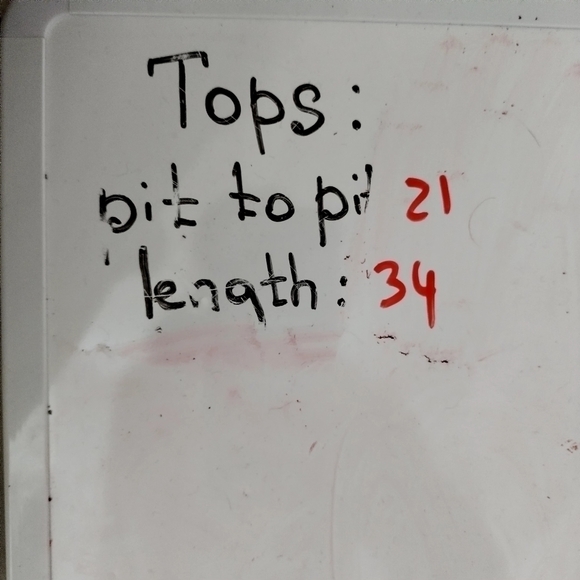 Tops:
pit to pit 21
length: 34